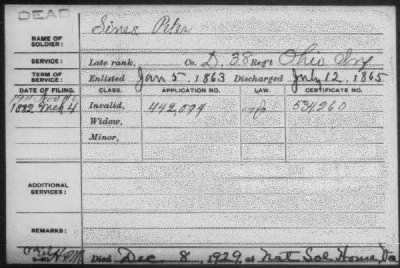 DEAD
NAME OF SOLDIER: Sines Peter
SERVICE: Late rank, Co. D, 38 Reg't Ohio Inf
TERM OF SERVICE: Enlisted Jan 5, 1863 Discharged July 12, 1865
DATE OF FILING. CLASS. APPLICATION NO. LAW. CERTIFICATE NO.
1882 Mch 4 Invalid, 442,094 534260
Widow,
Minor,
ADDITIONAL SERVICES:
REMARKS:
Died Dec 8, 1929, at Nat Sol Home, Va